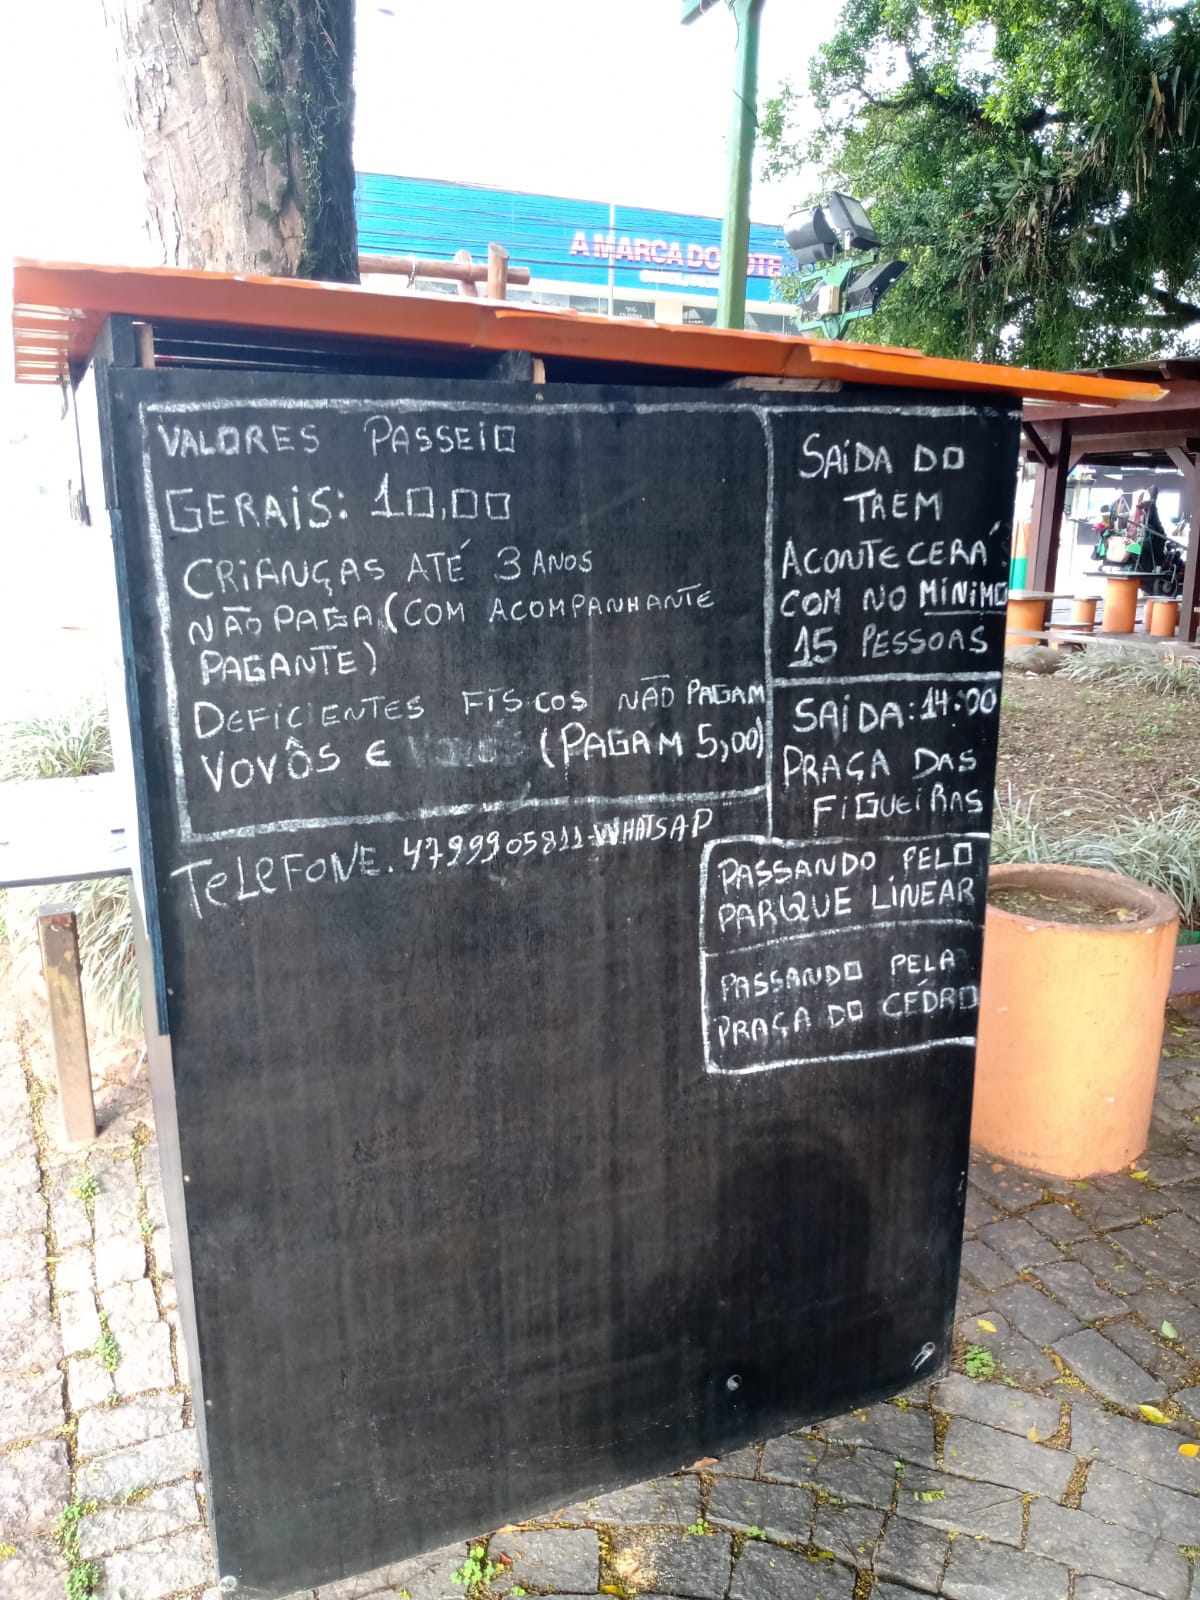 A MARCA DO
VALORES PASSEIO
GERAIS: 10,00
CRIANÇAS ATÉ 3 ANOS
NÃO PAGA (COM ACOMPANHANTE
PAGANTE)
DEFICIENTES FISÍCOS NÃO PAGAM
VOVÔS E (PAGAM 5,00)
TELEFONE. 47999905811-WHATSAP
SAÍDA DO
TREM
ACONTECERÁ
COM NO MÍNIMO
15 PESSOAS
SAÍDA: 14:00
PRAÇA DAS
FIGUEIRAS
PASSANDO PELO
PARQUE LINEAR
PASSANDO PELA
PRAÇA DO CEDRO